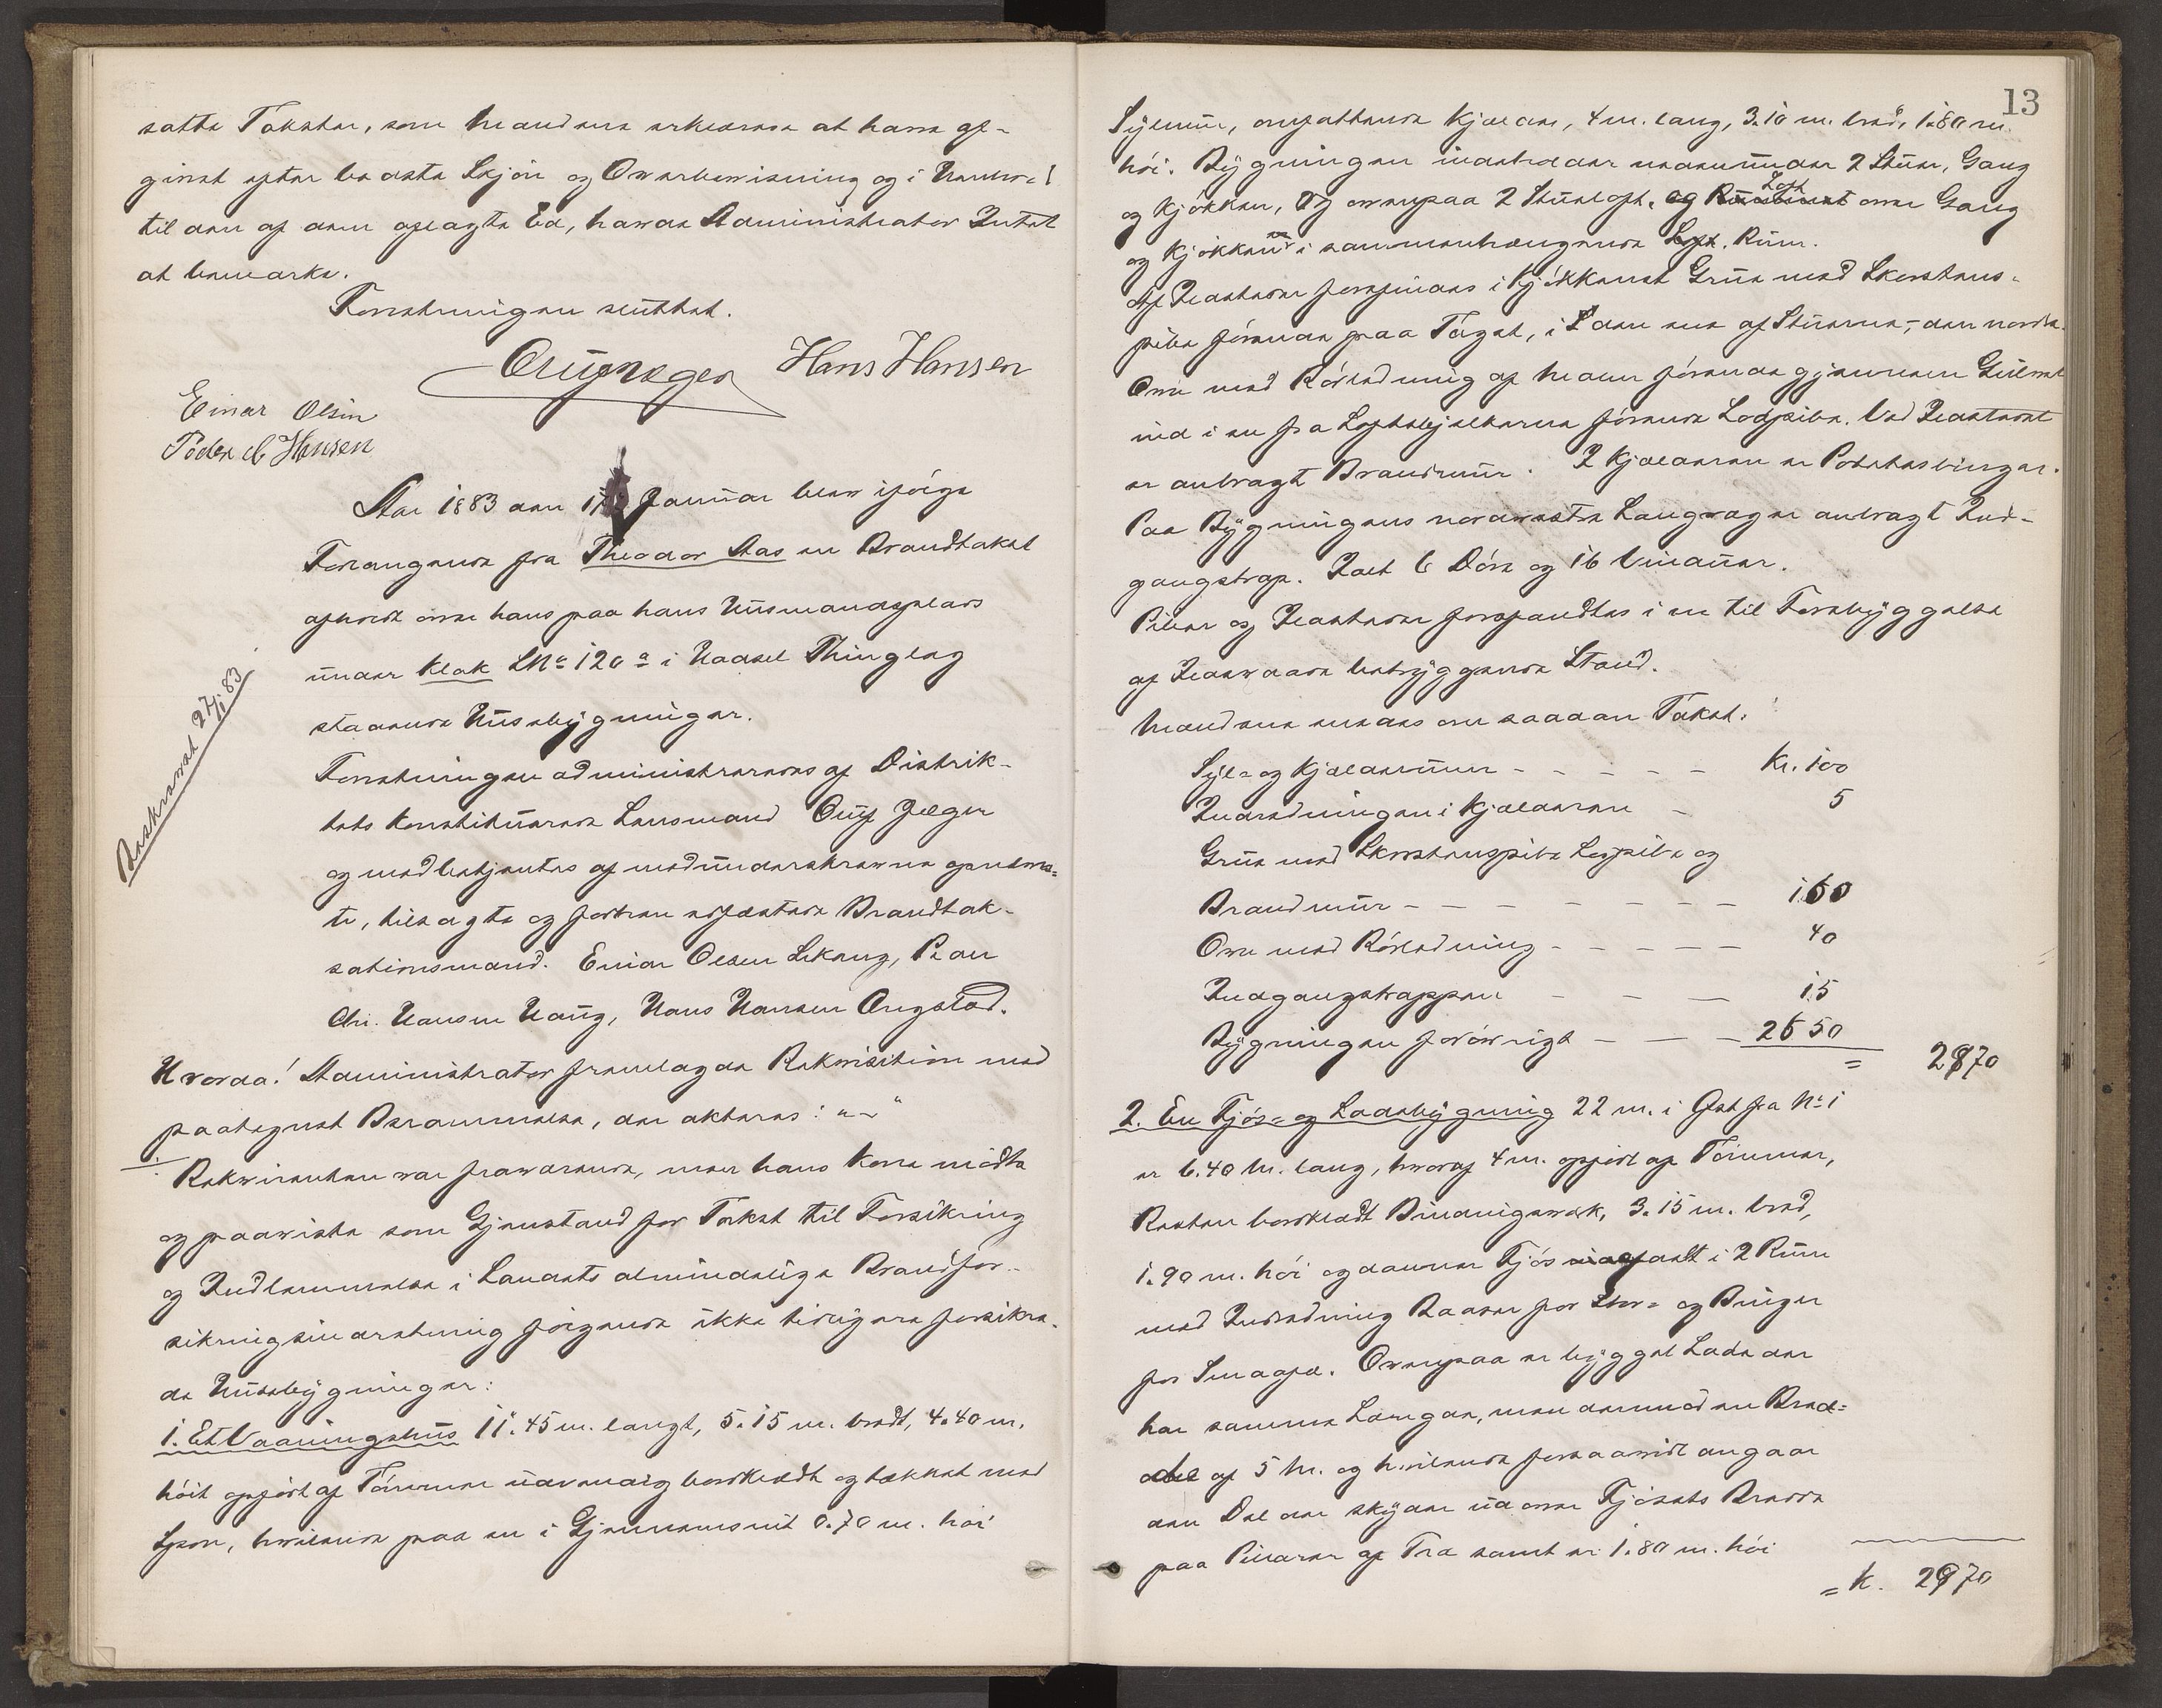 satte Takster, som Mændene erklærede at have af-
givet efter bedste Skjøn og Overbevisning og i Henhold
til den af dem aflagte Ed, havde Administrator Intet
at bemærke.
Forretningen sluttet.
Hans Hansen
Einar Olsen
Peder C Hansen
Aar 1883 den 17 Januar blev ifølge
Forlangende fra Theodor Aas en Brandtakst
afholdt over hans paa hans Husmandsplads
under Klæk LNo 120a i Hadsel Thinglag
staaende Husebygninger.
Forretningen administreredes af Distrik-
tets konstituerede Lensmand Oluf Jæger
og medbetjentes af medunderskrevne opnævn-
te, tilsagte og forhen edfæstede Brandtak-
sationsmænd: Einar Olsen Skaug, Peder
Chr. Hansen Haug, Hans Hansen Ongstad.
Beskrevet 27/1 83
Hvorda! Administrator fremlagde Rekvisition med
paategnet Berammelse, der akteres: „-“
Rekvirenten var fraværende, men hans Kone mødte
og paaviste som Gjenstand for Takst til Forsikring
og Indlemmelse i Landets almindelige Brandfor-
sikringsindretning følgende ikke tidligere forsikre-
de Husebygninger:
1. Et Vaaningshus 11.45 m. langt, 5.15 m. bredt, 4.40 m.
høit opført af Tømmer udvendig bordklædt og tækket med
Spon, hvilende paa en i Gjennemsnit 0.70 m. høi
13
Sylmur, omfattende Kjælder, 4 m. lang, 3.10 m. bred, 1.80 m.
høi. Bygningen indeholder nedenunder 2 Stuer, Gang
og Kjøkken, og ovenpaa 2 Stueloft, og Loft over Gang
og Kjøkken i sammenhængende Rum.
Af Ildsteder forefindes i Kjøkkenet Grue med Skorstens-
pibe førende paa Taget, i den ene af Stuerne, den nordre
Ovn med Rørledning af Malm førende gjennem Gulvet
ind i en fra Loftsbjelkerne førende Lodpibe. Ved Ildstedet
er anbragt Brandmur. I Kjælderen er Potetesbinger.
Paa Bygningens nordvestre Langvæg er anbragt Ind-
gangstrap. Ialt 6 Døre og 16 Vinduer.
Piber og Ildsteder forefandtes i en til Forebyggelse
af Ildsvaade betryggende Stand.
Mændene enedes om saadan Takst:
Syl- og Kjældermur - - - - - Kr. 100
Indredningen i Kjælderen - 5
Grue med Skorstenspibe Lodpibe og
Brandmur - - - - - - - 160
Ovn med Rørledning - - - - - 40
Indgangstrappen - - - 15
Bygningen forøvrigt - - - 2550
= 2870
2. En Fjøs- og Ladebygning 22 m. i Øst fra No 1
er 6.40 M. lang, hvoraf 4 m. opført af Tømmer,
Resten bordklædt Bindingsværk, 3.15 m. bred,
1.90 m. høi og danner Fjøs indedelt i 2 Rum
med Indredning Baaser for Stor- og Binger
for Smafæ. Ovenpaa er bygget Lade der
har samme Længde, men derimod en Bred-
de af 5 M. og hvilende forsaavidt angaar
den Del der skyder ud over Fjøsets Bredde
paa Pillarer af Træ samt er 1.80 m. høi
= K. 2870